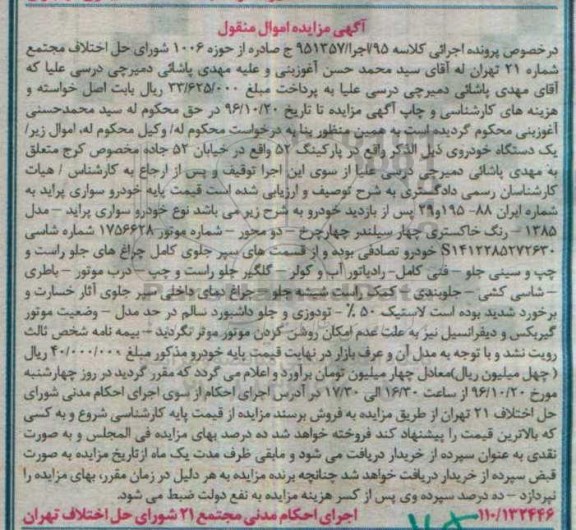 آگهی مزایده اموال منقول
در خصوص پرونده اجرائی کلاسه ۹۵/اجرا/۹۵۱۳۵۷ ج صادره از حوزه ۱۰۰۶ شورای حل اختلاف مجتمع
شماره ۲۱ تهران له آقای سید محمد حسن آغوزبنی و علیه مهدی پاشائی دمیرچی درسی علیا که
آقای مهدی پاشائی دمیرچی درسی علیا به پرداخت مبلغ ۲۳/۶۲۵/۰۰۰ ریال بابت اصل خواسته و
هزینه های کارشناسی و چاپ آگهی مزایده تا تاریخ ۹۶/۱۰/۲۰ در حق محکوم له سید محمدحسنی
آغوزبنی محکوم گردیده است به همین منظور بنا به درخواست محکوم له/ وکیل محکوم له، اموال زیر/
یک دستگاه خودروی ذیل الذکر واقع در پارکینگ ۵۲ واقع در خیابان ۵۲ جاده مخصوص کرج متعلق
به مهدی پاشائی دمیرچی درسی علیا از سوی این اجرا توقیف و پس از ارجاع به کارشناس / هیات
کارشناسان رسمی دادگستری به شرح توصیف و ارزیابی شده است قیمت پایه خودرو سواری پراید به
شماره ایران ۸۸- ۱۹۵و۲۹ پس از بازدید خودرو به شرح زیر می باشد نوع خودرو سواری پراید – مدل
۱۳۸۵ – رنگ خاکستری چهار سیلندر چهارچرخ – دو محور – شماره موتور ۱۷۵۶۶۲۸ شماره شاسی
S۱۴۱۲۲۸۵۲۷۲۶۳۰ خودرو تصادفی بوده و از قسمت های سپر جلوی کامل چراغ های جلو راست و
چپ و سینی جلو – فنی کامل– رادیاتور آب و کولر – گلگیر جلو راست و چپ – درب موتور – باطری
– شاسی کشی – جلوبندی – کمک راست شیشه جلو – چراغ دمای داخلی سپر جلوی آثار خسارت و
برخورد شدید بوده است لاستیک ۵۰ ٪ – تودوزی و جلو داشبورد سالم در حد مدل – وضعیت موتور
گیربکس و دیفرانسیل نیز به علت عدم امکان روشن کردن موتور موثر نگردید – بیمه نامه شخص ثالث
رویت نشد و با توجه به مدل آن و عرف بازار در نهایت قیمت پایه خودرو مذکور مبلغ ۴۰/۰۰۰/۰۰۰ ریال
( چهل میلیون ریال)معادل چهار میلیون تومان برآورد و اعلام می گردد که مقرر گردید در روز چهارشنبه
مورخ ۹۶/۱۰/۲۰ از ساعت ۱۶/۳۰ الی ۱۷/۳۰ در آدرس اجرای احکام از سوی اجرای احکام مدنی شورای
حل اختلاف ۲۱ تهران از طریق مزایده به فروش برسند مزایده از قیمت پایه کارشناسی شروع و به کسی
که بالاترین قیمت را پیشنهاد کند فروخته خواهد شد ده درصد بهای مزایده فی المجلس و به صورت
نقدی به عنوان سپرده از خریدار دریافت می شود و مابقی ظرف مدت یک ماه ازتاریخ مزایده به صورت
قبض سپرده از خریدار دریافت خواهد شد چنانچه برنده مزایده به هر دلیل در زمان مقرر، بهای مزایده را
نپردازد – ده درصد سپرده وی پس از کسر هزینه مزایده به نفع دولت ضبط می شود.
۱۱۰/۱۳۲۴۴۶ اجرای احکام مدنی مجتمع ۲۱ شورای حل اختلاف تهران